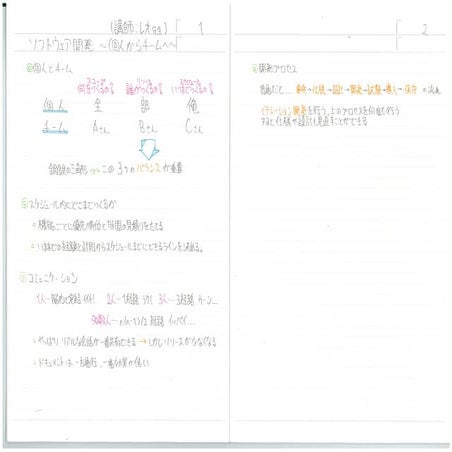 (講師:レオさん)
1
ソフトウェア開発 ～個人からチームへ～
◎個人とチーム
スコープ リソース スケジュール
何をつくるの? 誰がつくるの? いつまでにつくるの?
個人 全 部 俺
チーム Aさん Bさん Cさん
鋼鉄の三角形 この3つのバランスが重要
◎スケジュール内にどこまでつくるか
・機能ごとに優先順位と時間の見積りをたてる
・いままでの経験と計測からスケジュールまでにできるラインを決める。
◎コミュニケーション
1人 2人…1経路 3人…3経路
n(n-1)/2 経路 イッパイ…
・やっぱりリアルな会話が一番共有できる → しかしリソースが少なくなる
・ドキュメントは一方通行、一番効果が低い
2
◎開発プロセス
普通だと… 要求→仕様→設計→開発→試験→導入→保守 の流れ
イテレーション開発を行う、上のプロセスを何回も行う
すると仕様や設計も見直すことができる